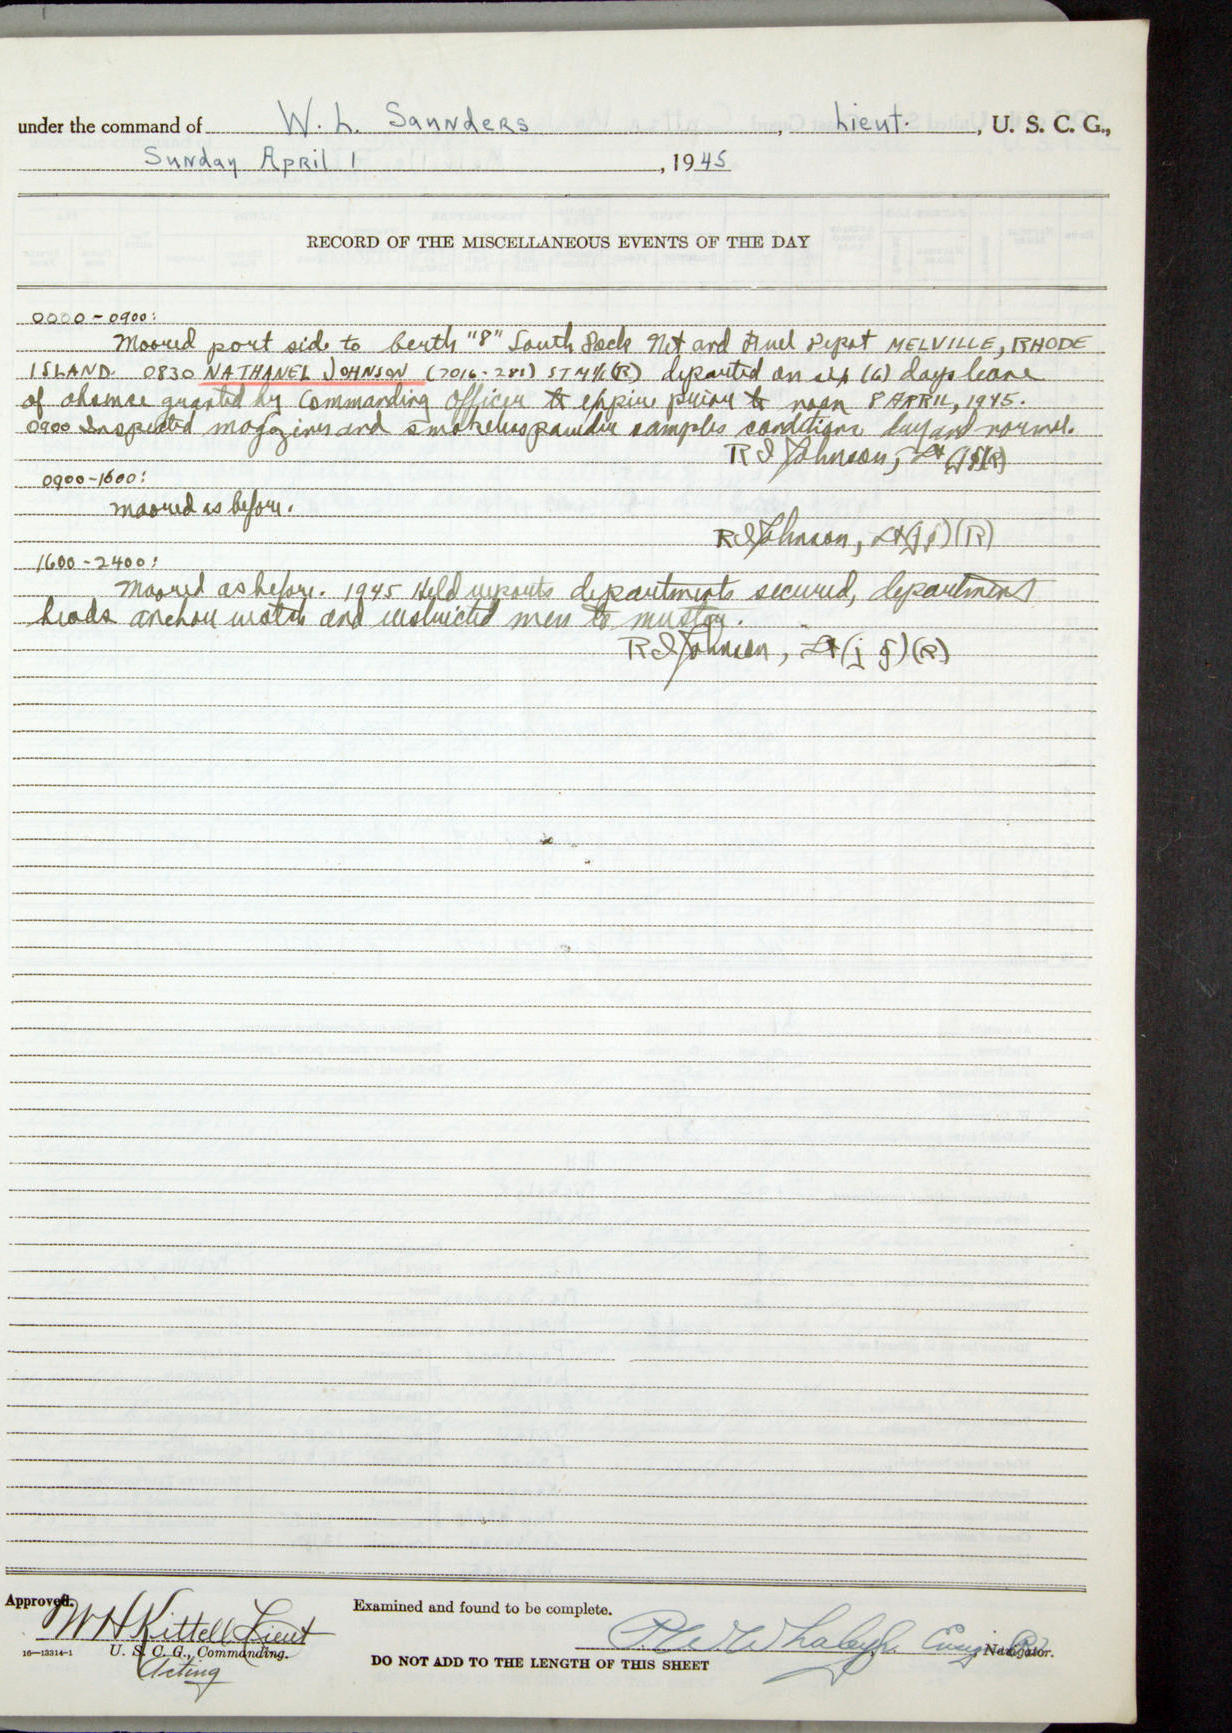 under the command of W. L. Saunders, Lieut., U. S. C. G.,
Sunday April 1, 1945
RECORD OF THE MISCELLANEOUS EVENTS OF THE DAY
0000-0900:
Moored port side to berth "8" South Dock Net and Fuel Depot MELVILLE, RHODE
ISLAND. 0830 NATHANEL JOHNSON (7016-281) ST M 1/c (R) departed on six (6) days leave
of absence granted by Commanding Officer to expire prior to noon 8 APRIL, 1945.
0900 Inspected magazines and smokeless powder samples conditions dry and normal.
R I Johnson, Lt (jg)(R)
0900-1600:
Moored as before.
R I Johnson, Lt (jg)(R)
1600-2400:
Moored as before. 1945 Held reports departments secured, department
heads anchor watch and restricted men to muster.
R I Johnson, Lt (jg)(R)
Approved.
W H Kittell Lieut
U. S. C. G., Commanding.
Acting
16—13314-1
Examined and found to be complete.
Whaley Ensign (R)
Navigator.
DO NOT ADD TO THE LENGTH OF THIS SHEET